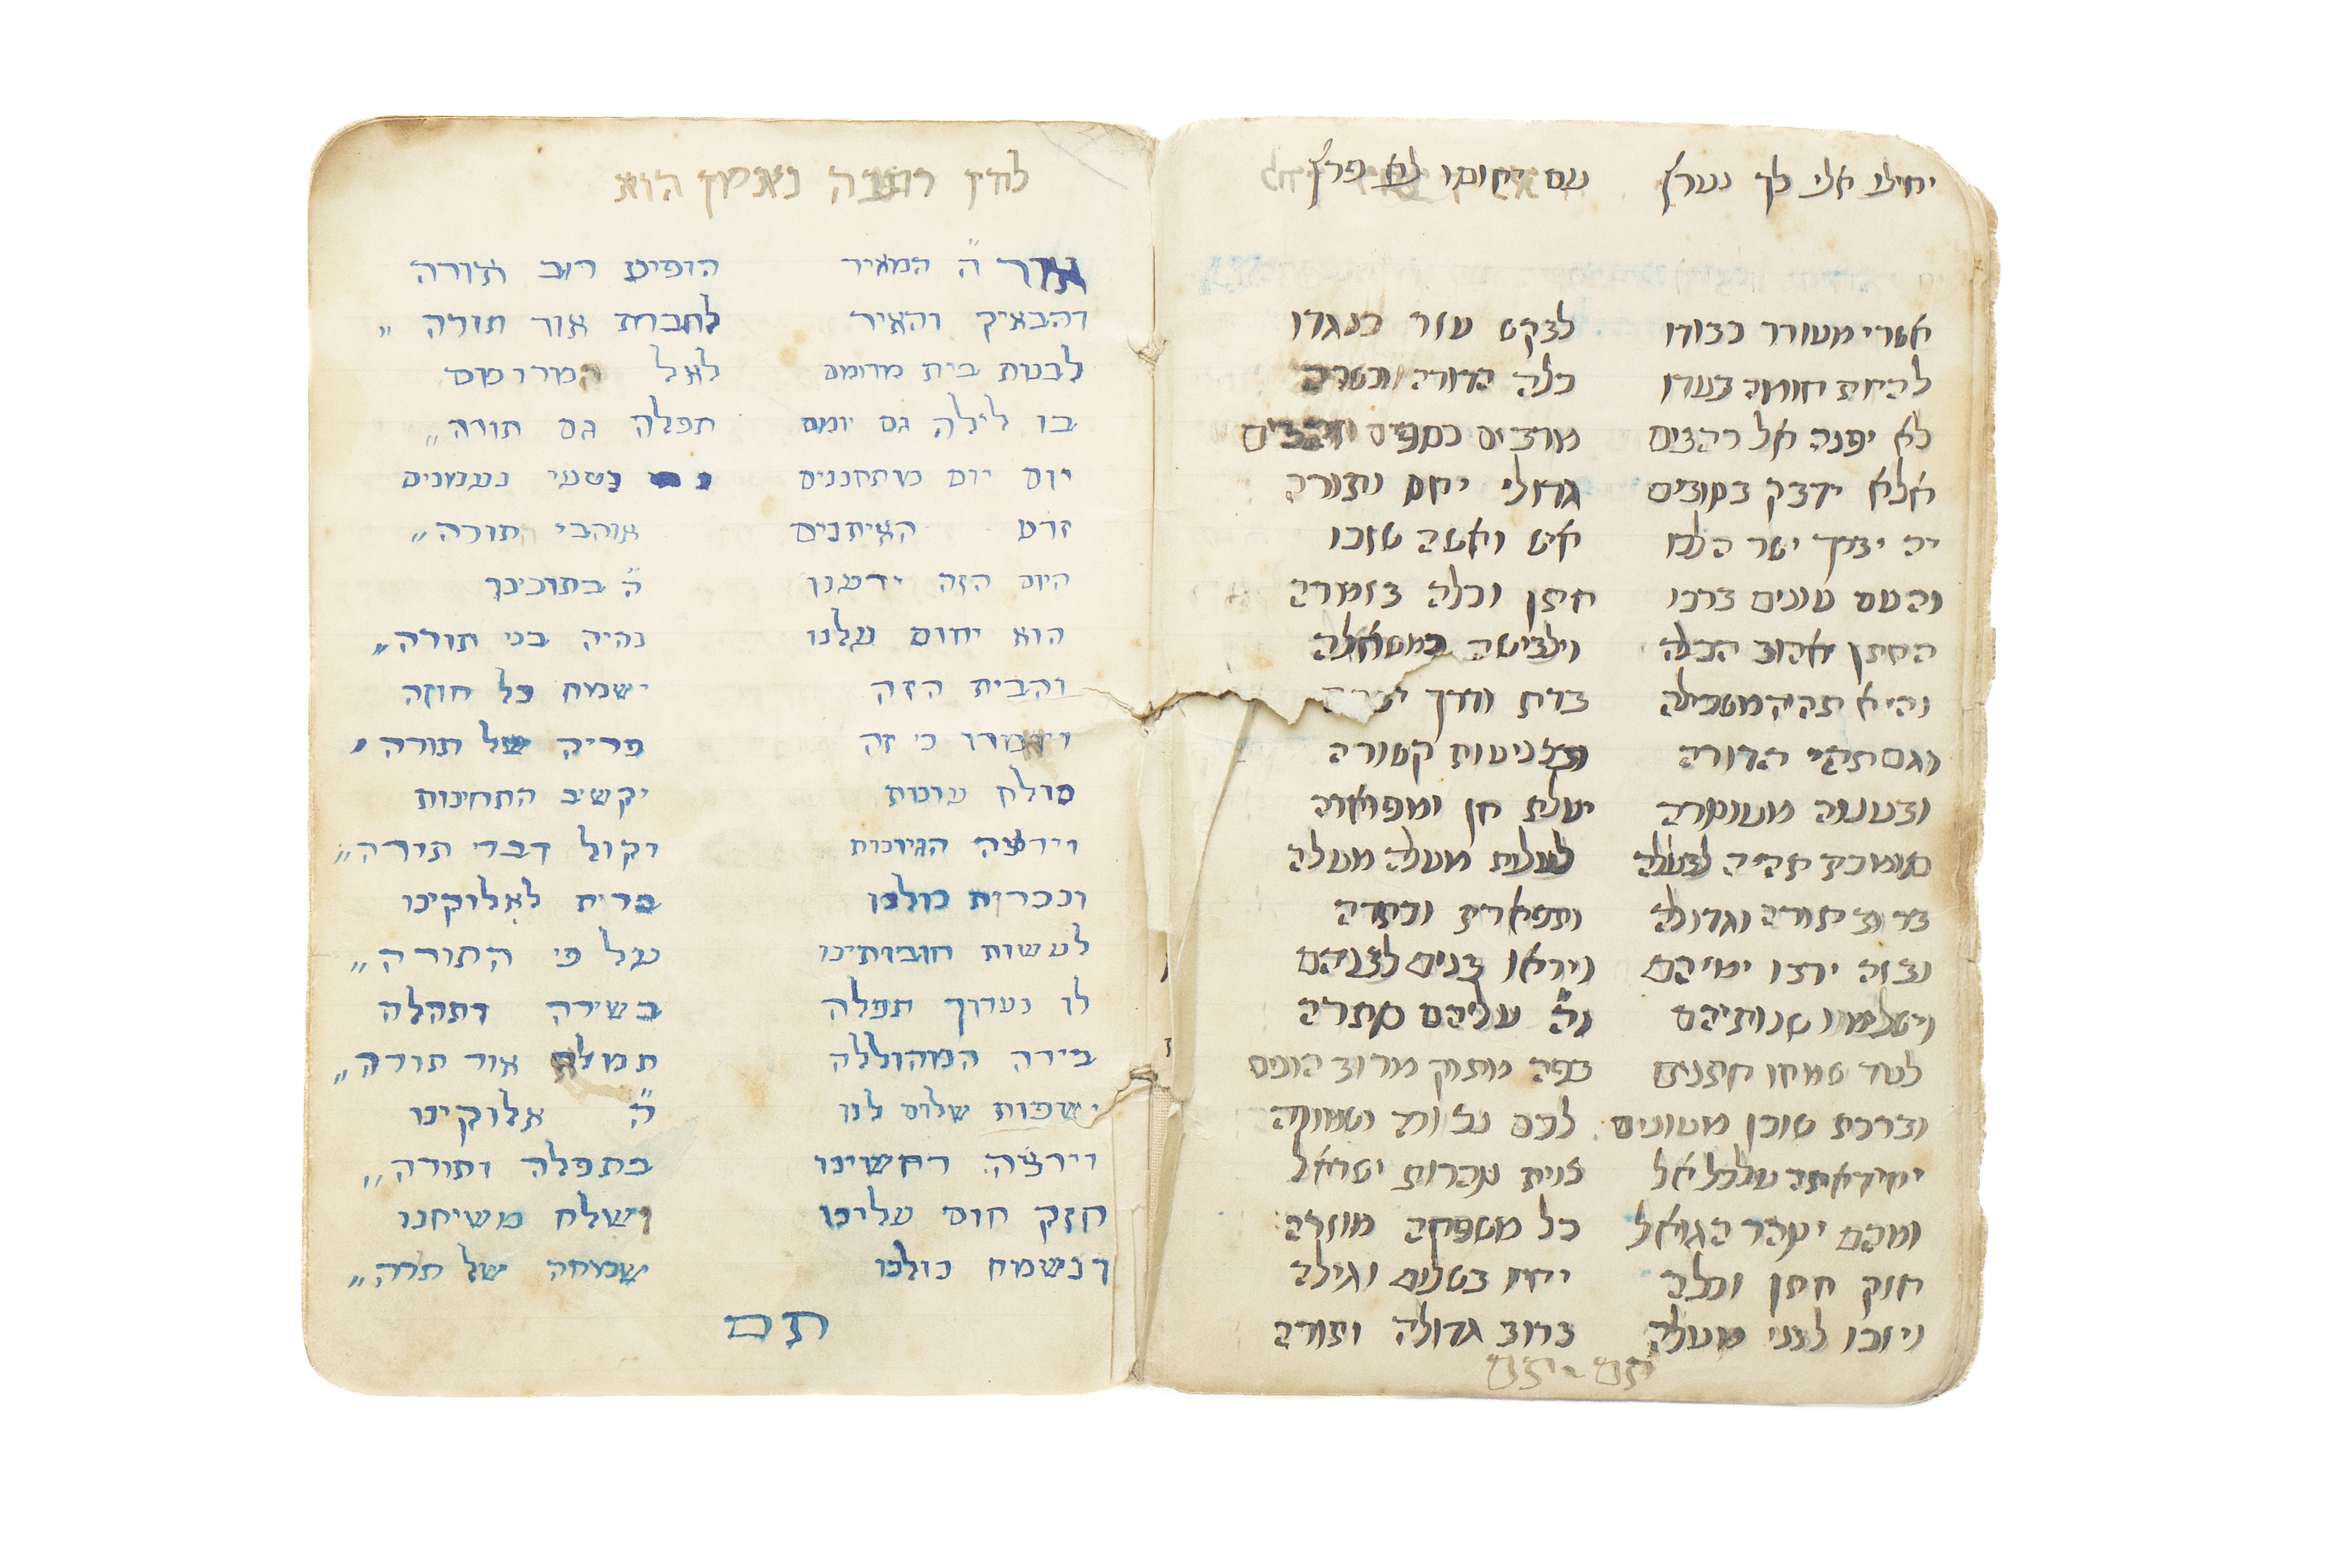 יחילו אלי לך נערץ עם יחותו לא פרץ
אשרי מעורר כבודו לבקש עזר כנגדו
להיות חומה בעדו כלה הדורה
לא יפנה אל רהבים מרבים כספים
אלא ידבק בטובים גדולי יחס ותורה
יה יצרך ישר הלכו איש ואשה שזכו
והשם עונים ברכו חתן וכלה בזמרה
החתן אהוב הכלה וילבישה
והיא תהיה משכילה בדת ודרך
וגם תהי הדורה ובצניעות קשורה
ובענוה מעוטרה יעלת חן ומפוארה
תומכת תהיה לבעלה לעלות מעלה מעלה
ברוב תורה וגדולה ותפארת וכתרה
ובזה ירצו ימיהם ויראו בנים לבניהם
וישלימו שנותיהם וה׳ עליהם סתרה
לעד שמחו חתנים בפה מתוק מרוב הונים
וברכת שוכן מעונים לכם
יחיד אתה על כל אל צוית טהרות ישראל
ומהם ימהר הגואל כל משפחה מוזרה
חזק חתן וכלה יחיו בשלום וגילה
ויזכו לבני מעלה ברוב גדולה ותורה
תם - תם
הוא
אור ה״ המאיר הופיע רוב תורה
והבאיק והאיר לחברת אור תורה״
לבנות בית מרומם לאל המרומם
בו לילה גם יומם תפלה גם תורה״
יום יום מתחננים נטעי נעמנים
זרע האיתנים אוהבי התורה״
היום הזה ידענו ה״ בתוכינו
הוא יחוס עלנו נהיה בני תורה״
והבית הזה ישמח כל חוזה
ויאמרו כי זה פריה של תורה״
סולח עונות יקשיב התחינות
וירצה הגיונות וקול דברי תורה״
ונכרות כולנו ברית לאלוקינו
לעשות חובותינו על פי התורה״
לו נערוך תפלה בשירה ותהלה
בירה המהוללה תמלא אור תורה״
ישפות שלום לנו ה״ אלוקינו
וירצה רחשינו בתפלה ותורה״
חזק חוס עלינו ושלח משיחנו
ונשמח כולנו שמחה של תרה״
תם